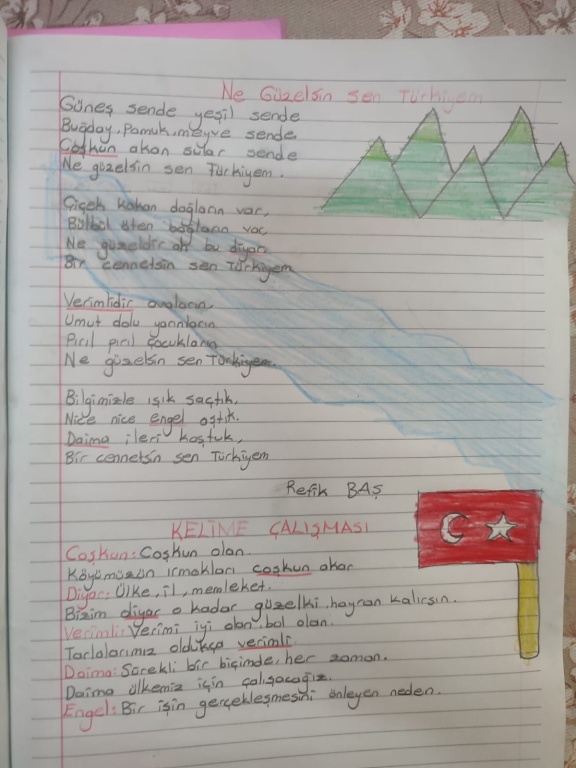 Ne Güzelsin Sen Türkiyem
Güneş sende yeşil sende
Buğday, Pamuk, meyve sende
Coşkun akan sular sende
Ne güzelsin sen Türkiyem.
Çiçek kokan dağların var,
Bülbül öten bağların var,
Ne güzeldir ah bu diyar
Bir cennetsin sen Türkiyem
Verimlidir ovaların
Umut dolu yarınların
Pırıl pırıl çocukların
Ne güzelsin sen Türkiyem.
Bilgimizle ışık saçtık,
Nice nice engel aştık.
Daima ileri koştuk,
Bir cennetsin sen Türkiyem
Refik BAŞ
KELİME ÇALIŞMASI
Coşkun: Coşkun olan.
Köyümüzün ırmakları coşkun akar
Diyar: Ülke, il, memleket.
Bizim diyar o kadar güzelki, hayran kalırsın.
Verimli: Verimi iyi olan, bol olan.
Tarlalarımız oldukça verimli.
Daima: Sürekli bir biçimde, her zaman.
Daima ülkemiz için çalışacağız.
Engel: Bir işin gerçekleşmesini önleyen neden.